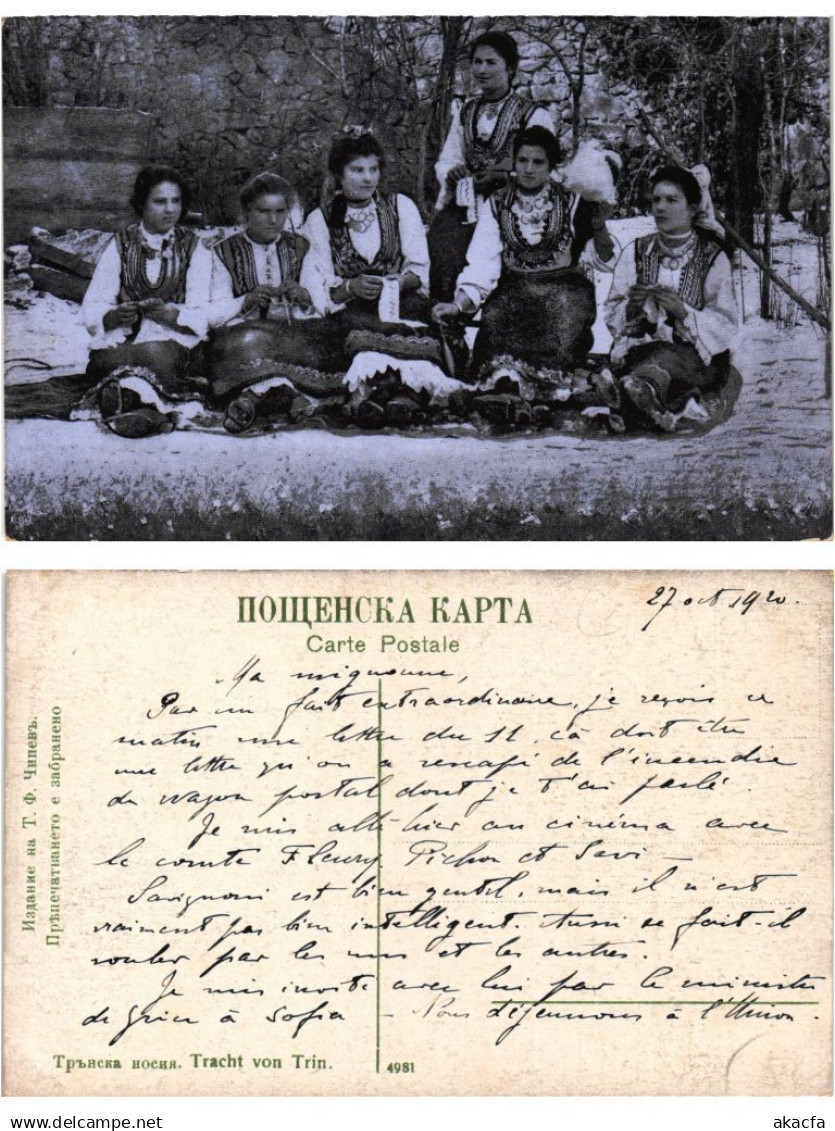 ПОЩЕНСКА КАРТА
Carte Postale
27 oct 1920.
Ma mignonne,
Par un fait extraordinaire, je reçois ce
matin une lettre du 11, ça doit être
une lettre qu'on a rescapé de l'incendie
du wagon postal dont je t'ai parlé.
Je suis allé hier au cinéma avec
le comte Fleury, Pichon et Savi-
Savignoni est bien gentil, mais il n'est
vraiment pas bien intelligent. Aussi se fait-il
rouler par les uns et les autres.
Je suis invité avec lui par le ministre
de Grèce à Sofia - Nous déjeunons à l'Union.
Издание на Т. Ф. Чипевъ.
Прѣпечатването е забранено
Трънска носия. Tracht von Trin.
4981
www.akacfa.com
akacfa